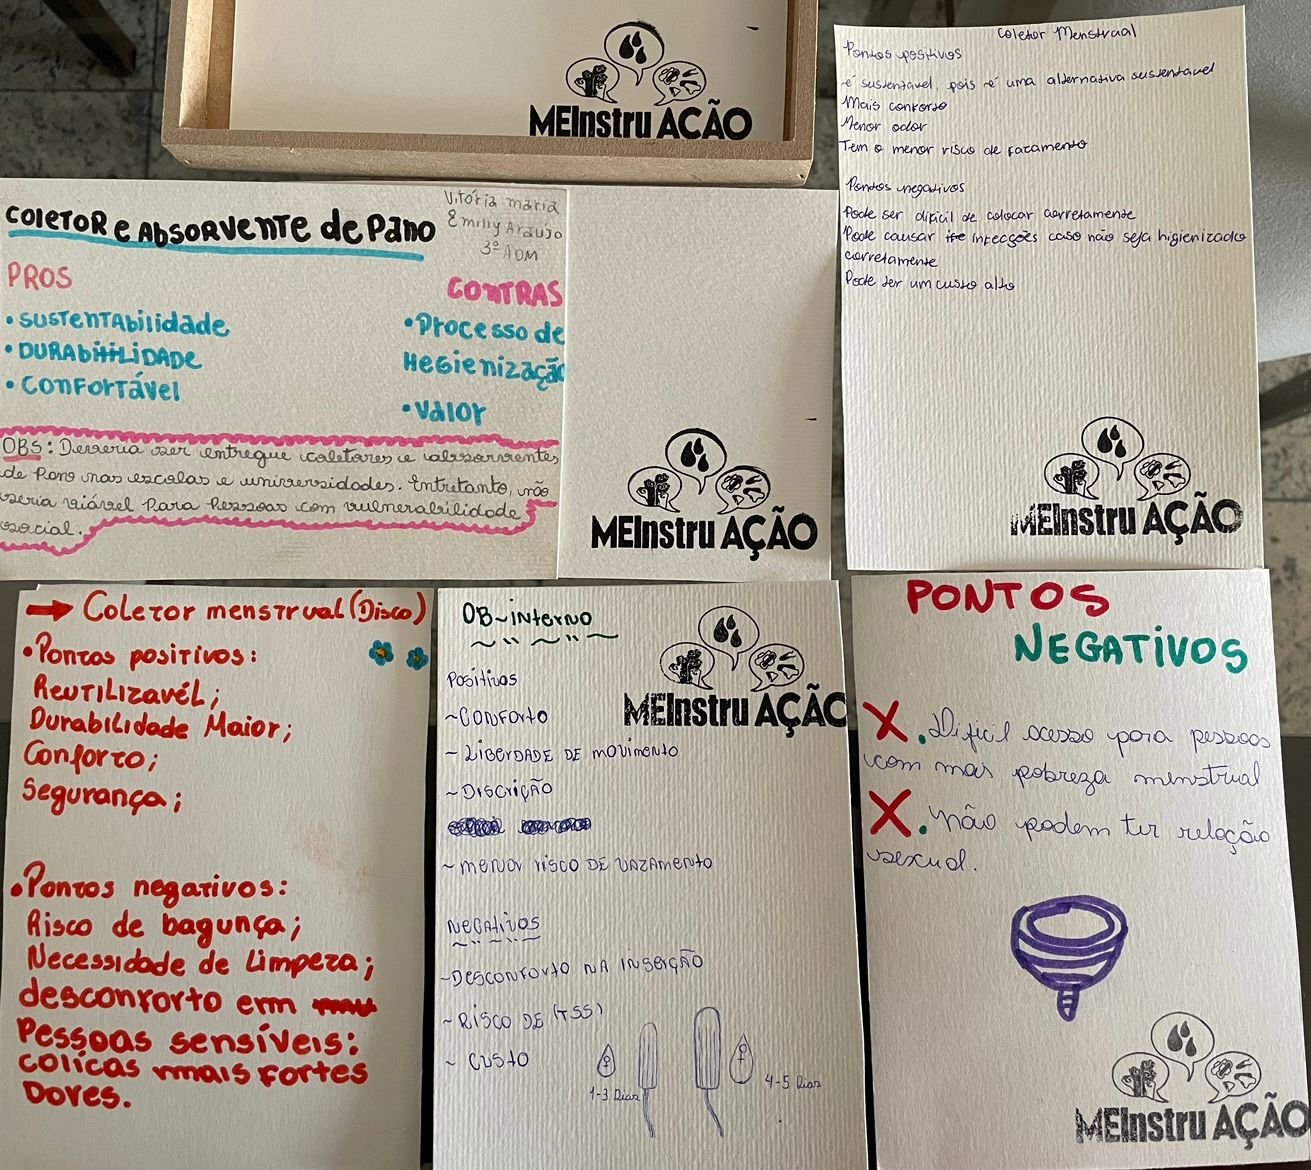 MEInstru AÇÃO
Coletor Menstrual
Pontos positivos
é sustentavel, pois é uma alternativa sustentavel
Mais conforto
Menor odor
Tem o menor risco de
Pontos negativos
Pode ser dificil de colocar corretamente
Pode causar infecções caso não seja higienizado
corretamente
Pode ter um custo alto
MEInstru AÇÃO
COLETOR e ABSORVENTE de PANO
Vitória maria
Emilly Araujo
3º ADM
PROS
• SUSTENTABilidade
• DURABILIDADE
• CONFORTÁVEl
CONTRAS
• Processo de
HeGienização
• Valor
OBS: Deveria ser entregue coletores e absorventes
de Pano nas escolas e universidades. Entretanto, não
seria viável Para Pessoas com vulnerabilidade
social.
MEInstru AÇÃO
→ Coletor menstrual (Disco)
• Pontos positivos:
REUTILIZAVÉL;
Durabilidade Maior;
Conforto;
Segurança;
• Pontos negativos:
Risco de bagunça;
Necessidade de Limpeza;
desconforto em
Pessoas sensíveis:
colicas mais fortes
Dores.
OB-interno
MEInstru AÇÃO
Positivos
~ CONFORTO
~ LIBERDADE DE movimento
~ DISCRIÇÃO
~ menor risco DE VAZAMENTO
NEGATIVOS
~ DESCONFORTO NA INSERÇÃO
~ RISCO DE (TSS)
~ CUSTO
1-3 Dias
4-5 Dias
PONTOS
NEGATIVOS
X. Dificil acesso para pessoas
com mais pobreza menstrual
X. não podem ter relação
sexual.
MEInstru AÇÃO